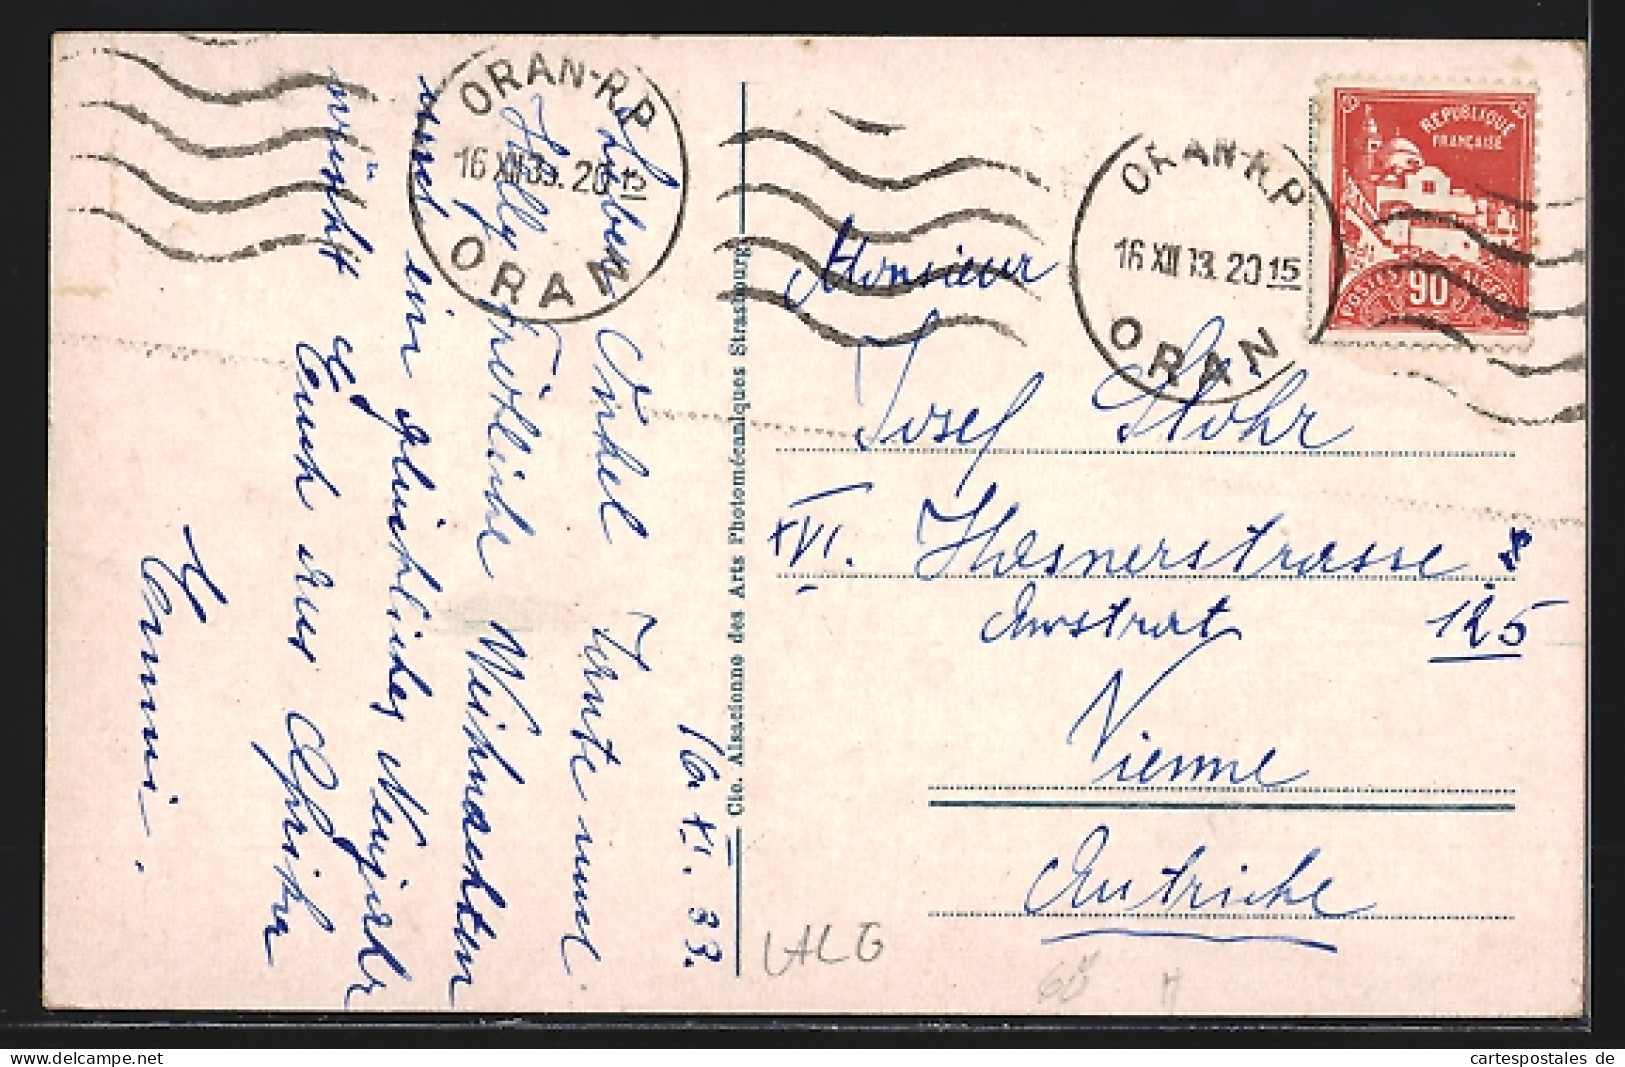 16. XI. 33.
Lieber Onkel Tante und
Helly fröhliche Weihnachten
und ein glückliches Neujahr
wünscht Euch aus Afrika
Hermi.
Cie. Alsacienne des Arts Photomécaniques Strasbourg
ORAN-R.P
16 XII 33. 20 15
ORAN
ORAN-R.P
16 XII 33. 20 15
ORAN
REPUBLIQUE
FRANÇAISE
POSTES 90 ALGERIE
Monsieur
Josef Stöhr
XVI.
125
Vienne
Autriche
ALG
68 H
cartespostales de